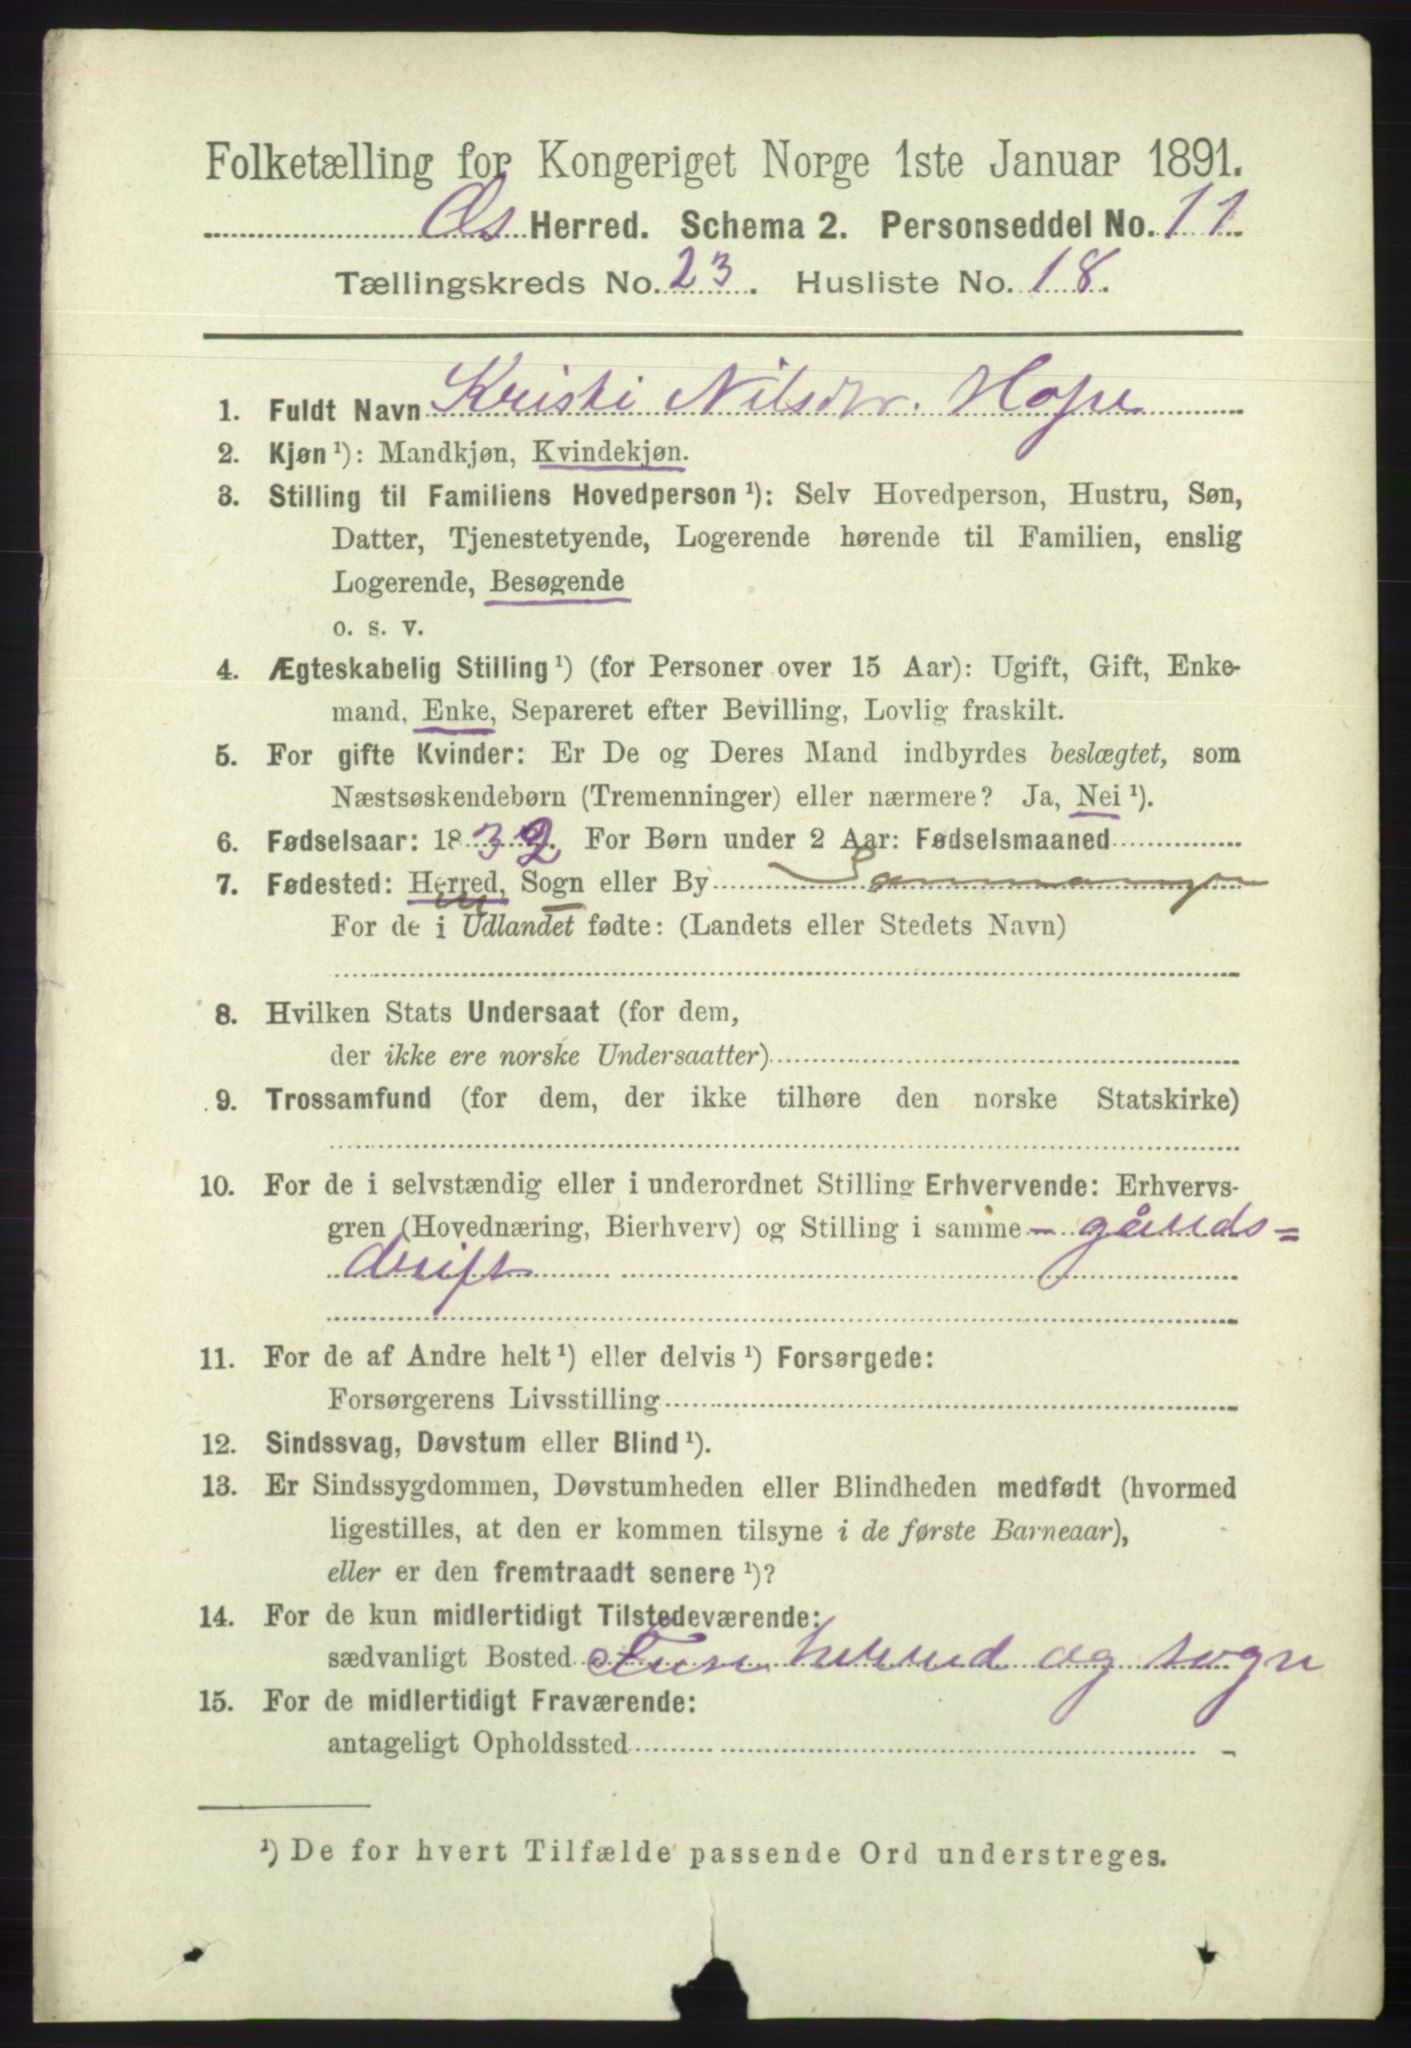 Folketælling for Kongeriget Norge 1ste Januar 1891.
Os Herred. Schema 2. Personseddel No. 11.
Tællingskreds No. 23. Husliste No. 18.
1. Fuldt Navn Kristi Nilsdtr. Hope
2. Kjøn ¹): Mandkjøn, Kvindekjøn.
3. Stilling til Familiens Hovedperson ¹): Selv Hovedperson, Hustru, Søn,
Datter, Tjenestetyende, Logerende hørende til Familien, enslig
Logerende, Besøgende
o. s. v.
4. Ægteskabelig Stilling ¹) (for Personer over 15 Aar): Ugift, Gift, Enke-
mand, Enke, Separeret efter Bevilling, Lovlig fraskilt.
5. For gifte Kvinder: Er De og Deres Mand indbyrdes beslægtet, som
Næstsøskendebørn (Tremenninger) eller nærmere? Ja, Nei ¹).
6. Fødselsaar: 1832. For Børn under 2 Aar: Fødselsmaaned
7. Fødested: Herred, Sogn eller By
For de i Udlandet fødte: (Landets eller Stedets Navn)
8. Hvilken Stats Undersaat (for dem,
der ikke ere norske Undersaatter)
9. Trossamfund (for dem, der ikke tilhøre den norske Statskirke)
10. For de i selvstændig eller i underordnet Stilling Erhvervende: Erhvervs-
gren (Hovednæring, Bierhverv) og Stilling i samme - gårds=
drift
11. For de af Andre helt ¹) eller delvis ¹) Forsørgede:
Forsørgerens Livsstilling
12. Sindssvag, Døvstum eller Blind ¹).
13. Er Sindssygdommen, Døvstumheden eller Blindheden medfødt (hvormed
ligestilles, at den er kommen tilsyne i de første Barneaar),
eller er den fremtraadt senere ¹)?
14. For de kun midlertidigt Tilstedeværende:
sædvanligt Bosted Fuse herred og sogn
15. For de midlertidigt Fraværende:
antageligt Opholdssted
¹) De for hvert Tilfælde passende Ord understreges.